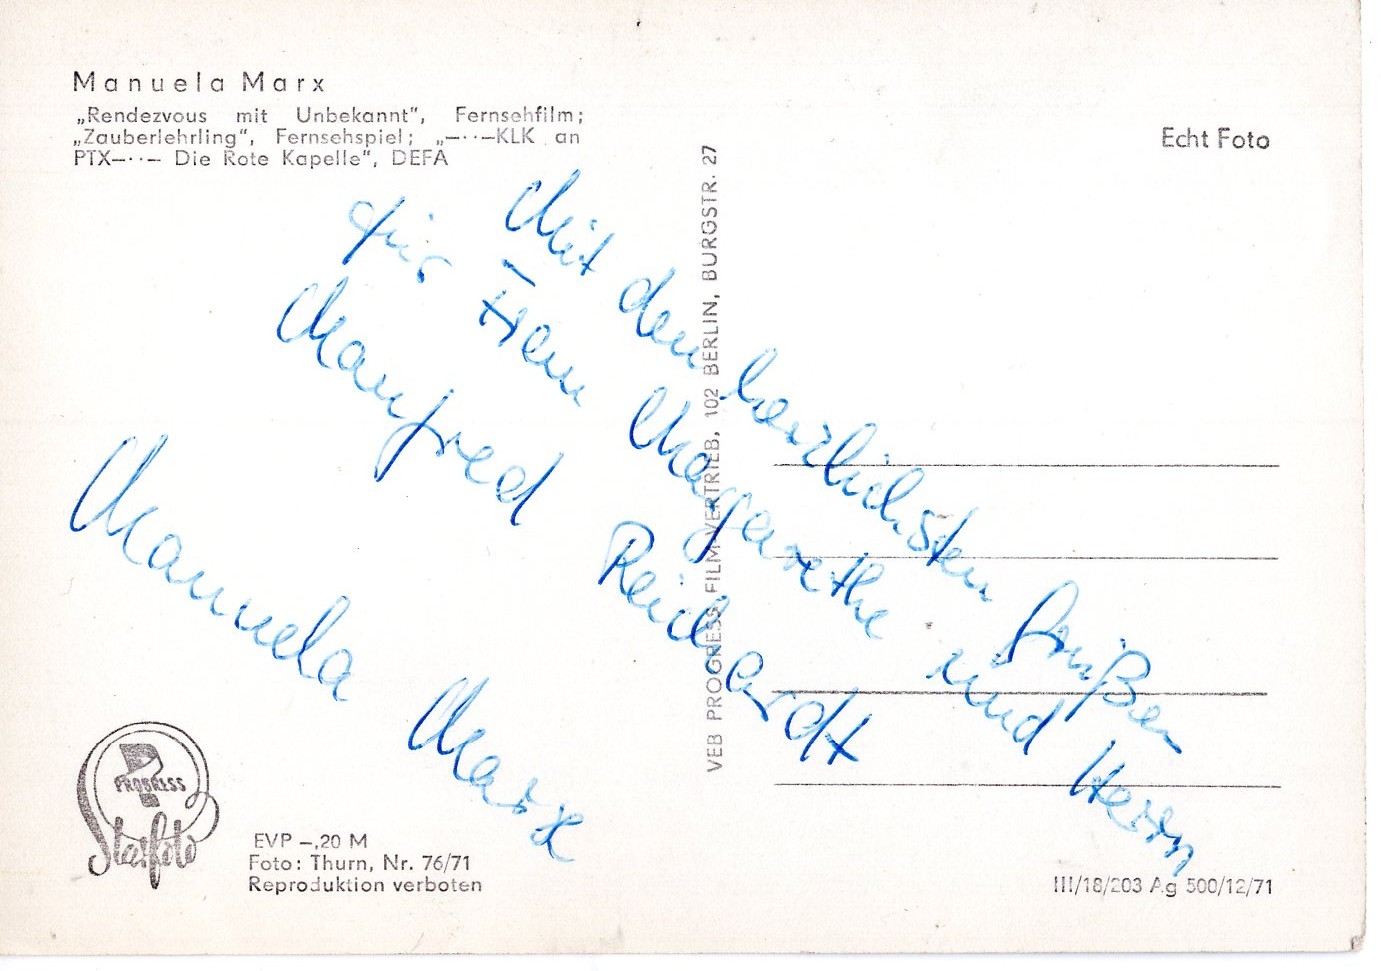 Manuela Marx
„Rendezvous mit Unbekannt“, Fernsehfilm;
„Zauberlehrling“, Fernsehspiel; „—··—KLK an
PTX—··— Die Rote Kapelle“, DEFA
Echt Foto
Mit den herzlichsten Grüßen
für Frau Margarethe und Herrn
Manfred Reichardt
Manuela Marx
VEB PROGRESS FILM-VERTRIEB, 102 BERLIN, BURGSTR. 27
PROGRESS
Starfoto
EVP –,20 M
Foto: Thurn, Nr. 76/71
Reproduktion verboten
III/18/203 Ag 500/12/71